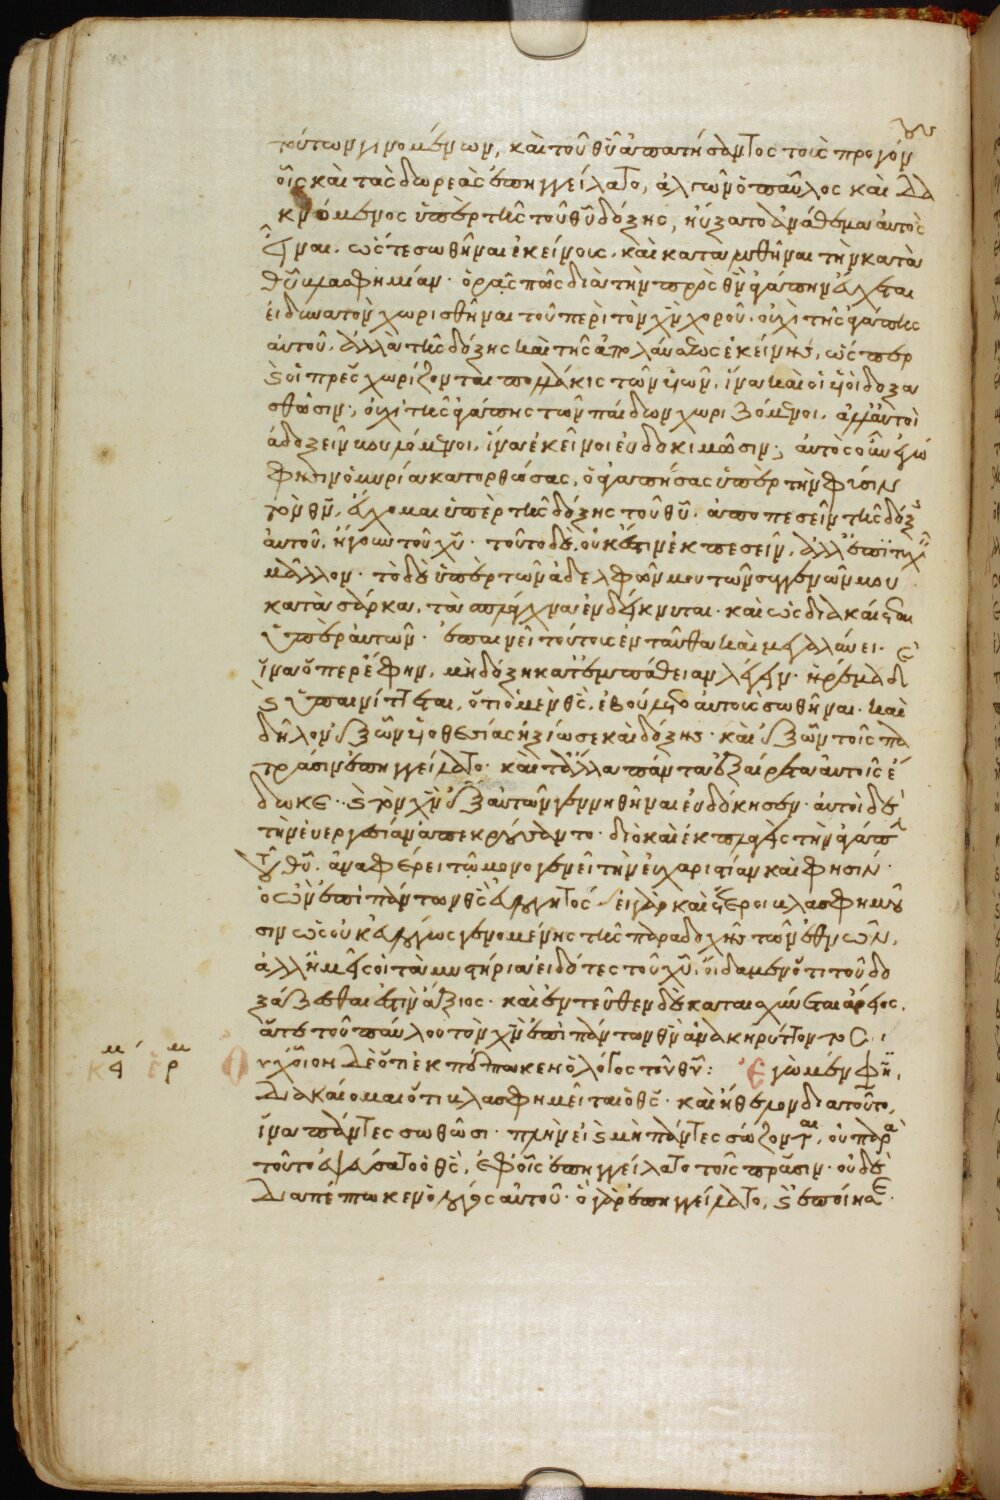 τούτων γινομένων, καὶ τοῦ θῦ ἀπατήσαντος τοὺς προγόν
οις καὶ τὰς δωρεὰς ἐπηγγείλατο, ἀλγῶν ὁ παῦλος καὶ δα
κνόμενος ὑπὲρ τῆς τοῦ θῦ δόξης, ηὔξατο ἀνάθεμα αὐτὸς
εἶναι. ὥστε σωθῆναι ἐκείνους. καὶ καταλυθῆναι τὴν κατὰ
θῦ βλασφημίαν· ὁρᾷς πῶς διὰ τὴν πρὸς θν ἀγάπην εὔχεται
εἰ δυνατὸν χωρισθῆναι τοῦ περὶ τὸν χν χοροῦ. οὐχὶ τῆς ἀγάπης
αὐτοῦ. ἀλλὰ τῆς δόξης καὶ τῆς ἀπολαύσεως ἐκείνης, ὥσπερ
καὶ οἱ πρες χωρίζονται πολλάκις τῶν υἱῶν, ἵνα καὶ οἱ υἱοὶ δοξα
σθῶσιν, οὐχὶ τῆς ἀγάπης τῶν παίδων χωριζόμενοι. ἀλλ' αὐτοὶ
ἀδοξεῖν βουλόμενοι, ἵνα ἐκεῖνοι εὐδοκιμῶσιν; αὐτὸς οὖν ἐγώ
φησιν ὁ μυρία κατορθώσας, ὁ ἀγαπήσας ὑπὲρ τὴν φύσιν
τὸν θν, εὔχομαι ὑπὲρ τῆς δόξης τοῦ θῦ. ἀποπεσεῖν τῆς δόξης
αὐτοῦ. ἤγουν τοῦ χῦ· τοῦτο δὲ, οὐκ ἔστιν ἐκπεσεῖν, ἀλλ' ἐπιτυχεῖν
μᾶλλον· τὸ δὲ ὑπὲρ τῶν ἀδελφῶν μου τῶν συγγενῶν μου
κατὰ σάρκα, τὰ σπλάγχνα ἐνδείκνυται· καὶ ὡς διακαίεται
ὑπὲρ αὐτῶν· ἐπαινεῖ τούτους ἐνταῦθα καὶ μεγαλύνει·
ἵνα ὅπερ ἔφην, μὴ δόξῃ κατ' ἐμπάθειαν λέγειν· ἠρέμα δὲ
καὶ ὑπαινίττεται, ὅτι ὁ μὲν θς, ἐβούλετο αὐτοὺς σωθῆναι. καὶ
δῆλον ἐξ ὧν υἱοθεσίας ἠξίωσε καὶ δόξης· καὶ ἐξ ὧν τοῖς πα
τράσιν ἐπηγγείλατο· καὶ τὰ ἄλλα πάντα ἐξαίρετα αὐτοῖς ἔ
δωκε· καὶ τὸν χν ἐξ αὐτῶν γεννηθῆναι εὐδόκησεν· αὐτοὶ δὲ
τὴν εὐεργεσίαν ἀπεκρούσαντο· διὸ καὶ ἐκπλαγεὶς τὴν ἀγάπην
τοῦ θῦ. ἀναφέρει τῷ μονογενεῖ τὴν εὐχαριστίαν καὶ φησίν·
ὁ ὢν ἐπὶ πάντων θς εὐλογητός· εἰ γὰρ καὶ ἕτεροι βλασφημοῦ
σιν ὡς οὐκ εὐλόγως γενομένης τῆς παραδοχῆς τῶν ἐθνῶν,
ἀλλ' ἡμεῖς οἱ τὰ μυστήρια εἰδότες τοῦ χῦ, οἴδαμεν ὅτι τοῦ δο
ξάζεσθαι ἐστὶν ἄξιος· καὶ ἐντεῦθεν δὲ καταισχύνεται ἄρειος.
ἅτε τοῦ παύλου τὸν χν ἐπὶ πάντων θν ἀνακηρύττοντος·
Οὐχ οἷον δὲ ὅτι ἐκπέπτωκεν ὁ λόγος τοῦ θῦ: Ἐγὼ μέν φησιν,
διακαίομαι ὅτι βλασφημεῖται ὁ θς· καὶ ἤθελον διατοῦτο,
ἵνα πάντες σωθῶσι· πλὴν εἰ καὶ μὴ πάντες σώζονται, οὐ παρὰ
τοῦτο ἐψεύσατο ὁ θς, ἐφ' οἷς ἐπηγγείλατο τοῖς πράσιν· οὐδὲ
διαπέπτωκεν ὁ λόγος αὐτοῦ· ὃ γὰρ ἐπηγγείλατο, καὶ ἐποίησε·